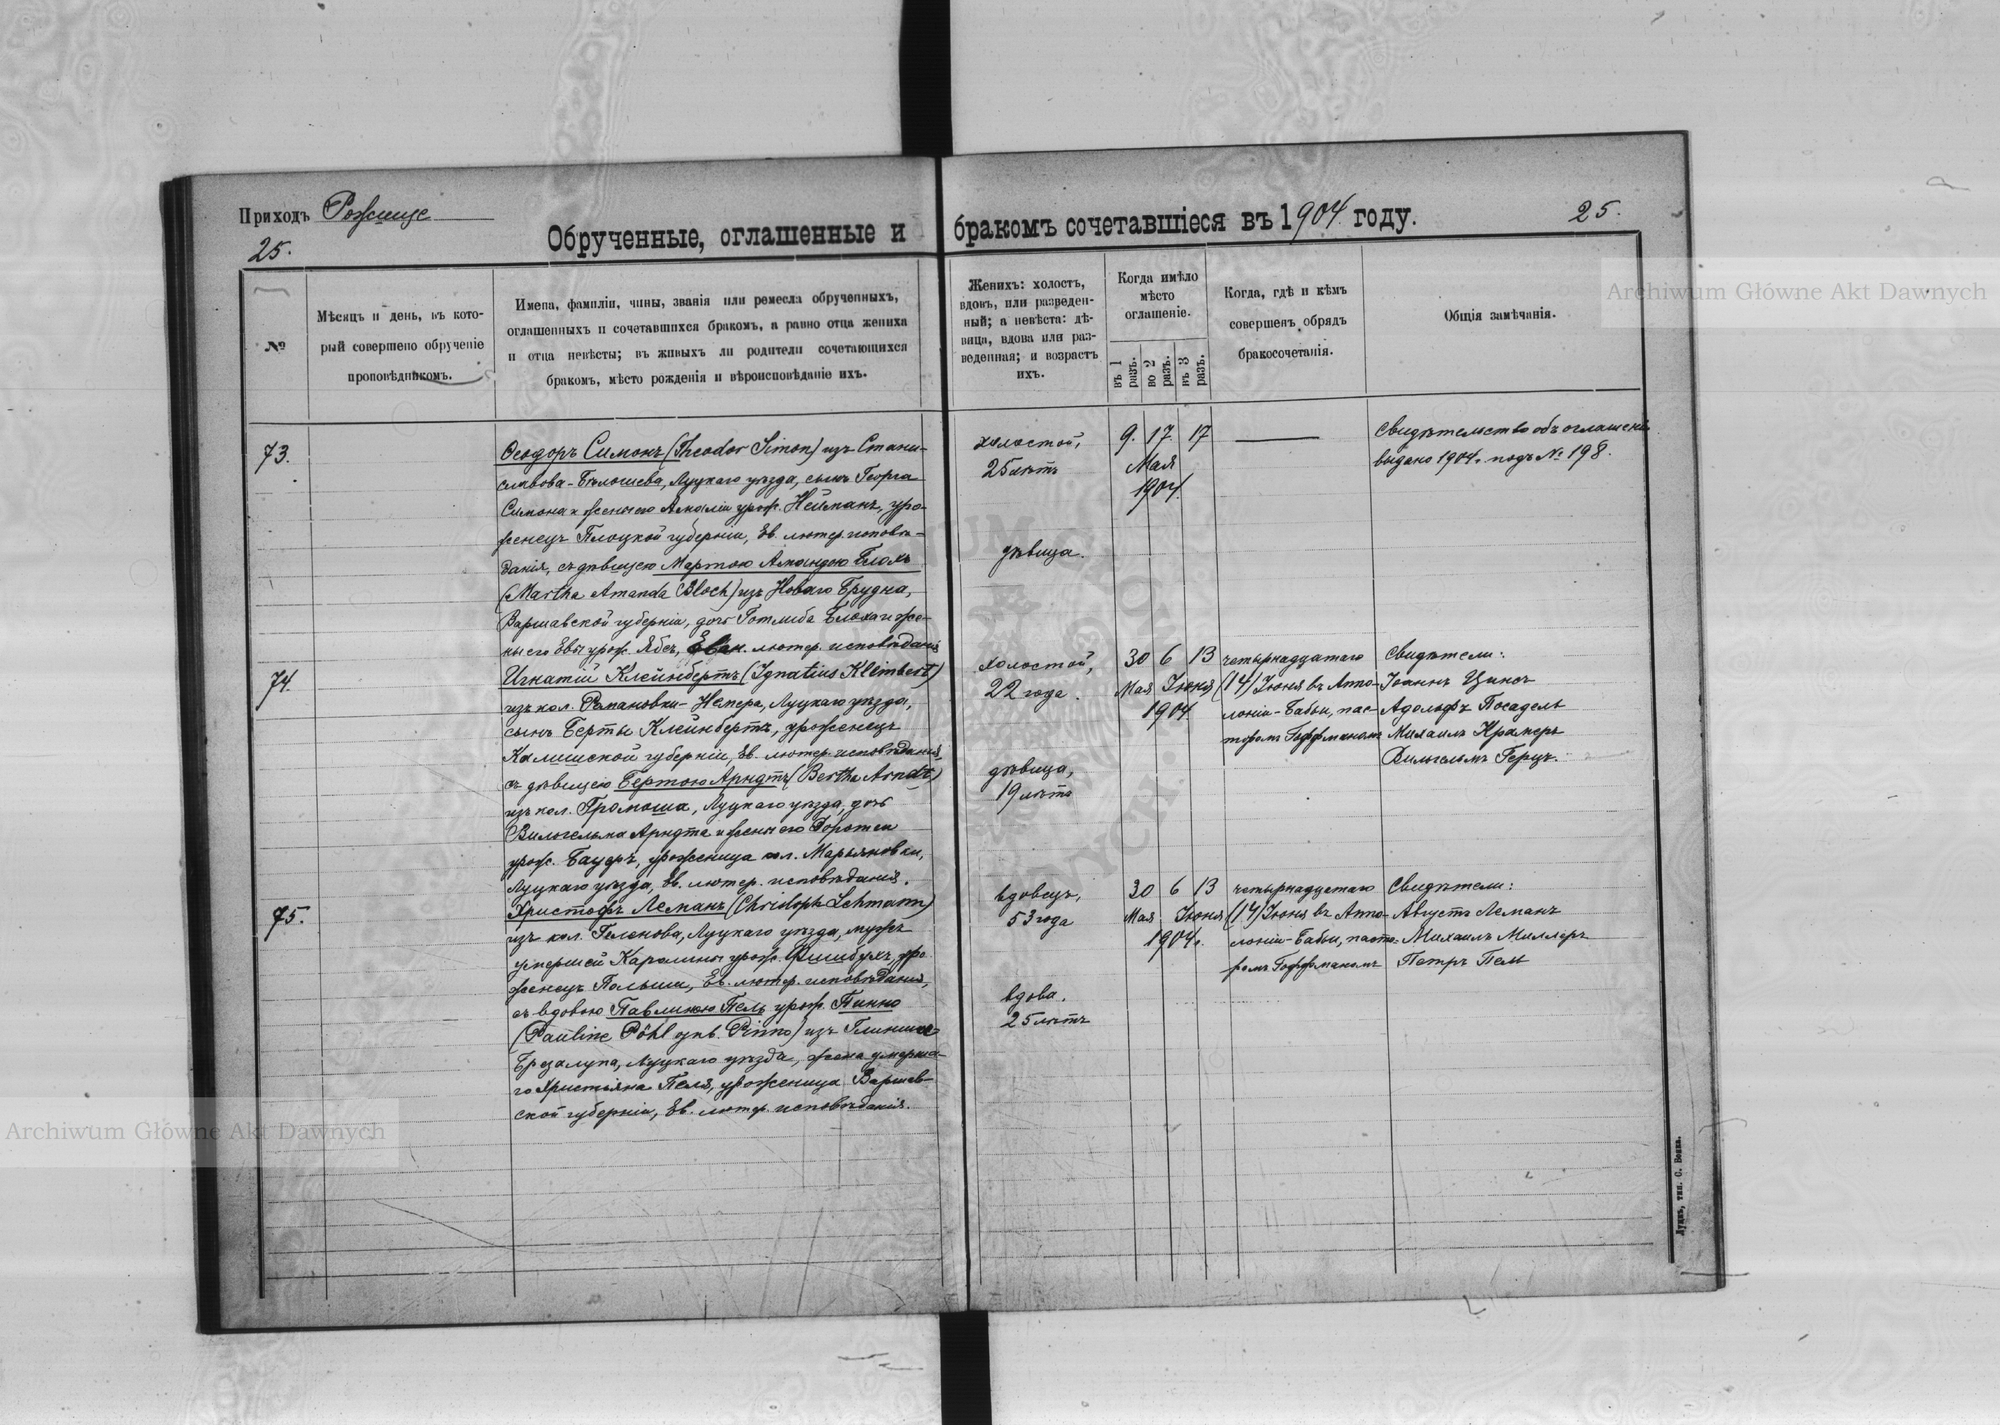 Приходъ Рожище
25.
Обрученные, оглашенные и бракомъ сочетавшіеся въ 1904 году.
25.
Archiwum Główne Akt Dawnych
№
Мѣсяцъ и день, въ кото-
рый совершено обрученіе
проповѣдникомъ.
Имена, фамиліи, чины, званія или ремесла обрученныхъ,
оглашенныхъ и сочетавшихся бракомъ, а равно отца жениха
и отца невѣсты; въ живыхъ ли родители сочетающихся
бракомъ, мѣсто рожденія и вѣроисповѣданіе ихъ.
Женихъ: холостъ,
вдовъ, или разведен-
ный; а невѣста: дѣ-
вица, вдова или раз-
веденная; и возрастъ
ихъ.
Когда имѣло
мѣсто
оглашеніе.
въ 1 разъ.
во 2 разъ.
въ 3 разъ.
Когда, гдѣ и кѣмъ
совершенъ обрядъ
бракосочетанія.
Общія замѣчанія.
73.
Ѳеодоръ Симонъ (Theodor Simon) изъ Стани-
славова-Бѣлошева, Луцкаго уѣзда, сынъ Георга
Симона и жены его Амаліи урож. Нейманъ, уро-
женецъ Плоцкой губерніи, Ев. лютер. исповѣ-
данія, съ дѣвицею Мартою Амандою Блохъ
(Martha Amanda Bloch) изъ Новаго Грудка,
Варшавской губерніи, дочь Готлиба Блоха и же-
ны его Евы урож. Ябсъ, Еван. лютер. исповѣданія
холостой,
25 лѣтъ
дѣвица.
9. 17. 17
Мая
1904.
Свидѣтельство объ оглашеніи
выдано 1904 г. подъ № 198.
74.
Игнатій Клейнбертъ (Ignatius Kleinbert)
изъ кол. Романовки-Непера, Луцкаго уѣзда,
сынъ Берты Клейнбертъ, уроженецъ
Калишской губерніи, Ев. лютер. исповѣданія,
съ дѣвицею Бертою Арндтъ (Bertha Arndt)
изъ кол. Громоша, Луцкаго уѣзда, дочь
Вильгельма Арндта и жены его Доротеи
урож. Бауеръ, уроженица кол. Марьяновки,
Луцкаго уѣзда, Ев. лютер. исповѣданія.
холостой,
22 года.
дѣвица,
19 лѣтъ
30 6 13
Мая Іюня
1904
четырнадцатаго
(14) Іюня въ Аппо-
лоніи-Бабьи, пас-
торомъ Гоффманомъ
Свидѣтели:
Іоаннъ Цинсъ
Адольфъ Посадель
Михаилъ Крамеръ
Вильгельмъ Герцъ.
75.
Христофъ Леманъ (Christoph Lehmann)
изъ кол. Геленова, Луцкаго уѣзда, мужъ
умершей Каролины урож. Вишбухъ, уро-
женецъ Польши, Ев. лютер. исповѣданія,
съ вдовою Павлиною Пель урож. Пинно
(Pauline Pöhl gnb. Pinno) изъ Глинища
Брезалупа, Луцкаго уѣзда, жена умерша-
го Христьяна Пеля, уроженица Варшав-
ской губерніи, Ев. лютер. исповѣданія.
вдовецъ,
53 года
вдова.
25 лѣтъ
30 6 13
Мая Іюня
1904 г.
четырнадцатаго
(14) Іюня въ Аппо-
лоніи-Бабьи, пасто-
ромъ Гоффманомъ
Свидѣтели:
Августъ Леманъ
Михаилъ Миллеръ
Петръ Пель
Archiwum Główne Akt Dawnych
Луцкъ, тип. С. Бокка.